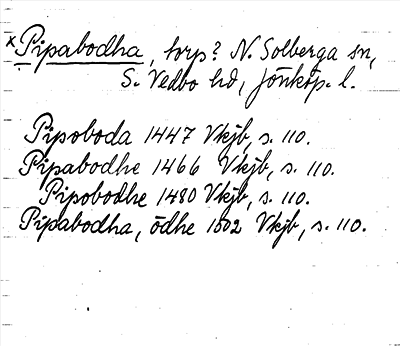 × Pipabodha, torp? N. Solberga sn,
S. Vedbo hd, Jönköp. l.
Pipoboda 1447 Vkjb, s. 110.
Pipabodhe 1466 Vkjb, s. 110.
Pipobodhe 1480 Vkjb, s. 110.
Pipabodha, ödhe 1502 Vkjb, s. 110.